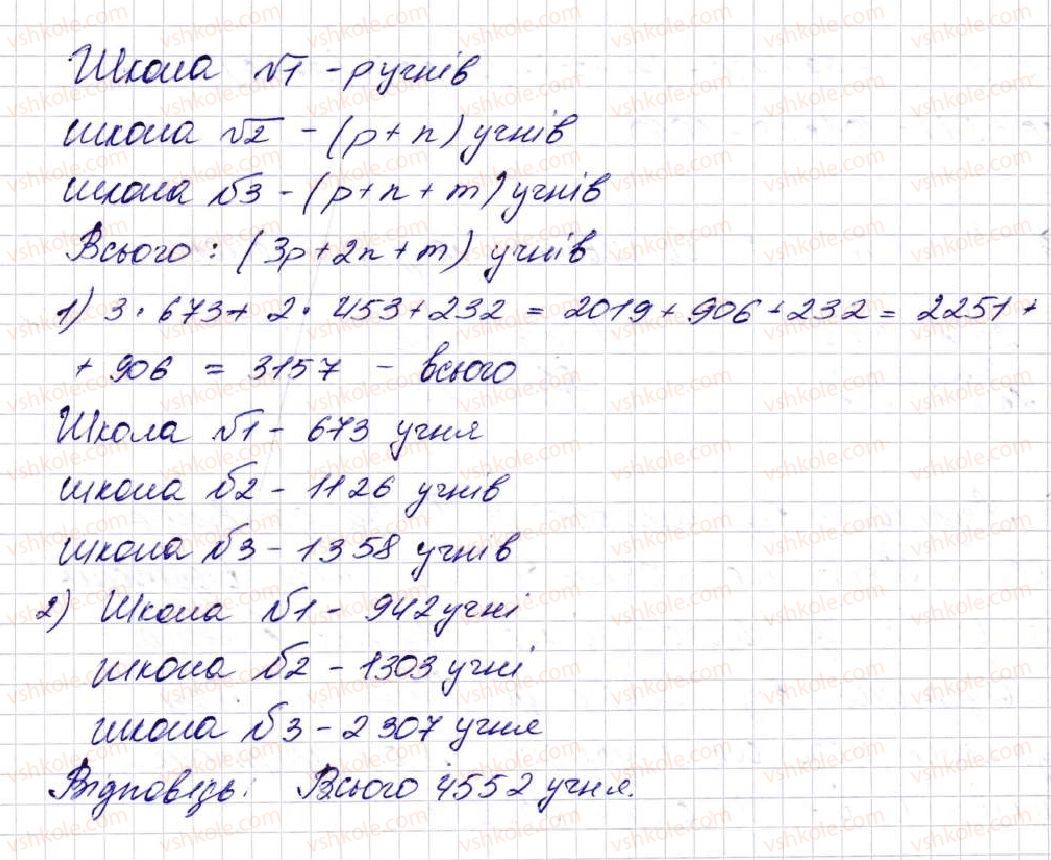 Школа №1 - p учнів
школа №2 - (p + n) учнів
школа №3 - (p + n + m) учнів
Всього : (3p + 2n + m) учнів
1) 3 · 673 + 2 · 453 + 232 = 2019 + 906 + 232 = 2251 +
+ 906 = 3157 - всього
Школа №1 - 673 учня
школа №2 - 1126 учнів
школа №3 - 1358 учнів
2) Школа №1 - 942 учні
школа №2 - 1303 учні
школа №3 - 2307 учня
Відповідь: Всього 4552 учня.